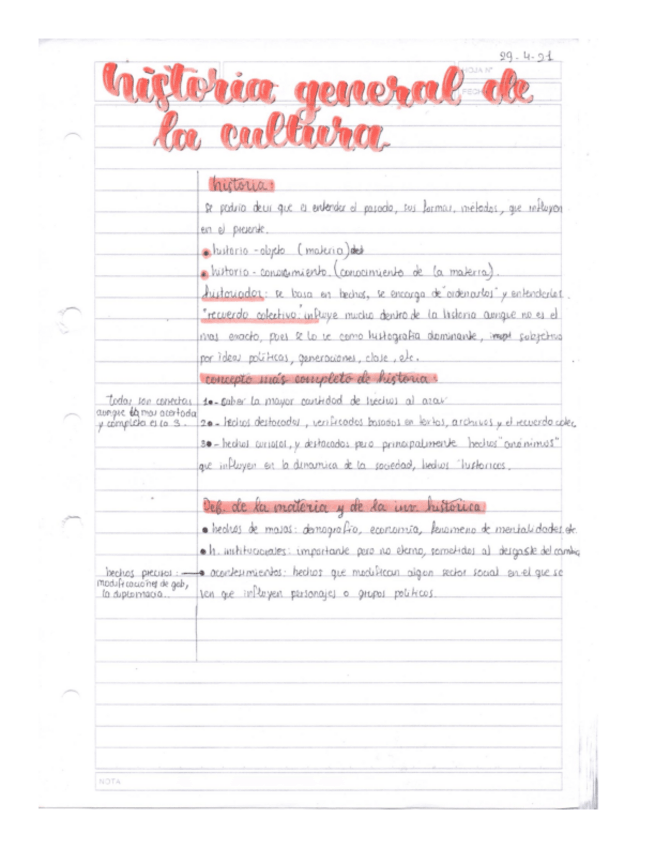 29-4-21
HOJA N°
FECHA
historia general de
la cultura
historia:
Se podria decir que es entender el pasado, sus formas, metodos, que influyen
en el presente.
historia - objeto (materia)
historia - conocimiento (conocimiento de la materia).
historiador: se basa en hechos, se encarga de "ordenarlos" y entenderlos.
"recuerdo colectivo" influye mucho dentro de la historia aunque no es el
mas exacto, pues se lo ve como histografia dominante, subjetiva
por ideas politicas, generaciones, clase, etc.
concepto más completo de historia:
Todas son correctas
aunque la mas acertada
y completa es la 3.
1•- saber la mayor cantidad de hechos al azar
2•- hechos destacados, verificados basados en textos, archivos y el recuerdo colec.
3•- hechos curiosos, y destacados pero principalmente hechos "anónimos"
que influyen en la dinamica de la sociedad, hechos "historicos.
Def. de la materia y de la inv. historica
• hechos de masas: demografia, economia, fenomeno de mentalidades, etc.
• h. institucionales: importante pero no eterno, sometidos al desgaste del cambio
hechos precisos:
modificaciones de gob,
la diplomacia..
• acontesimientos: hechos que modifican algun sector social en el que se
ven que influyen personajes o grupos politicos.
NOTA